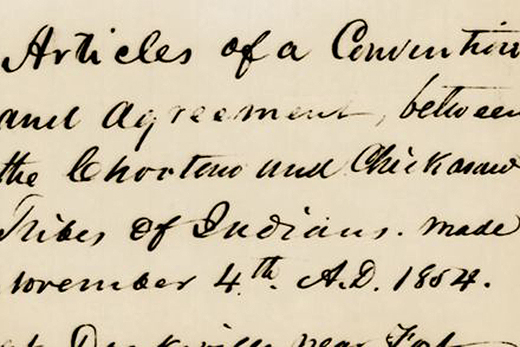 Articles of a Convention
and Agreement, between
the Choctaw and Chickasaw
Tribes of Indians. made
November 4th. A.D. 1854.
at Doaksville near Fort